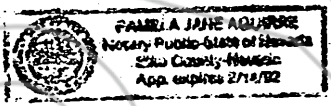 PAMELA JANE AGUIRRE
Notary Public-State of Nevada
Elko County-Nevada
App. expires 2/14/92